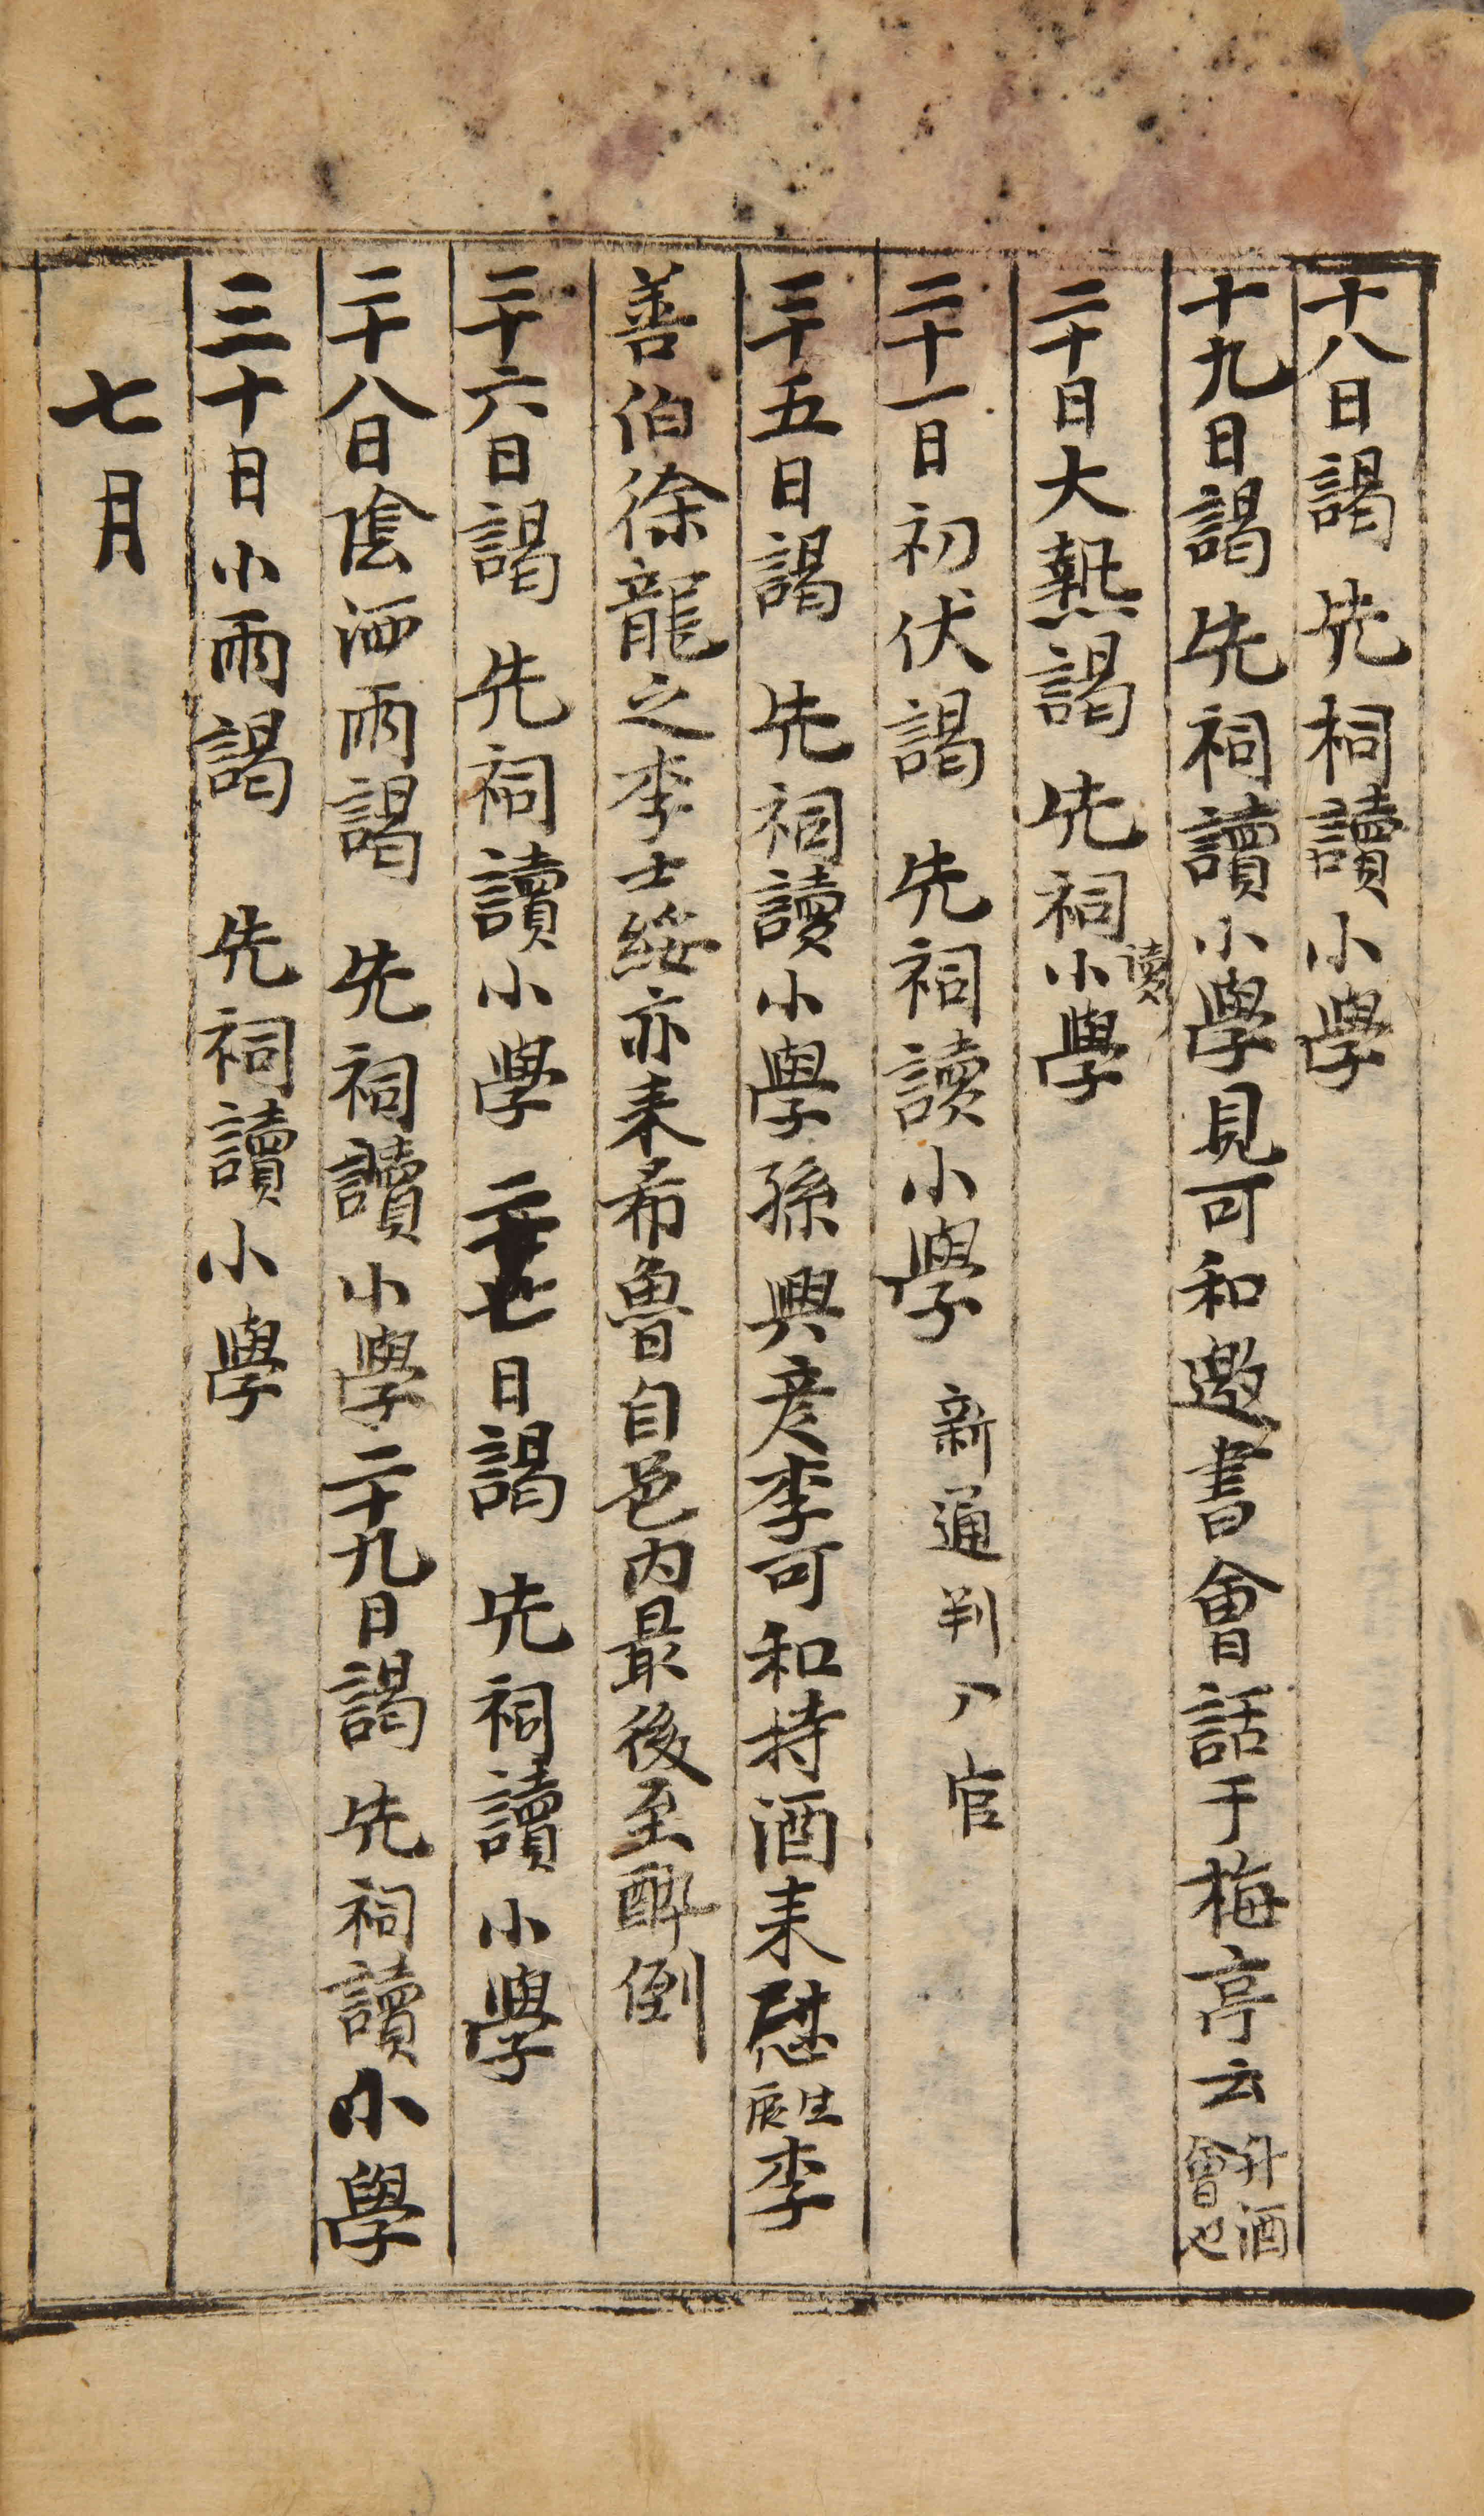 十八日謁 先祠讀小學
十九日謁 先祠讀小學見可和邀書會話于梅亭云升酒會也
二十日大熱謁 先祠讀小學
二十一日初伏謁 先祠讀小學 新通判 官
二十五日謁 先祠讀小學孫興彥李可和持酒來慰生辰李
善伯徐龍之李士綏亦來希魯自邑內最後至醉倒
二十六日謁 先祠讀小學 二十七日謁 先祠讀小學
二十八日陰洒雨謁 先祠讀小學二十九日謁 先祠讀小學
三十日小雨謁 先祠讀小學
七月